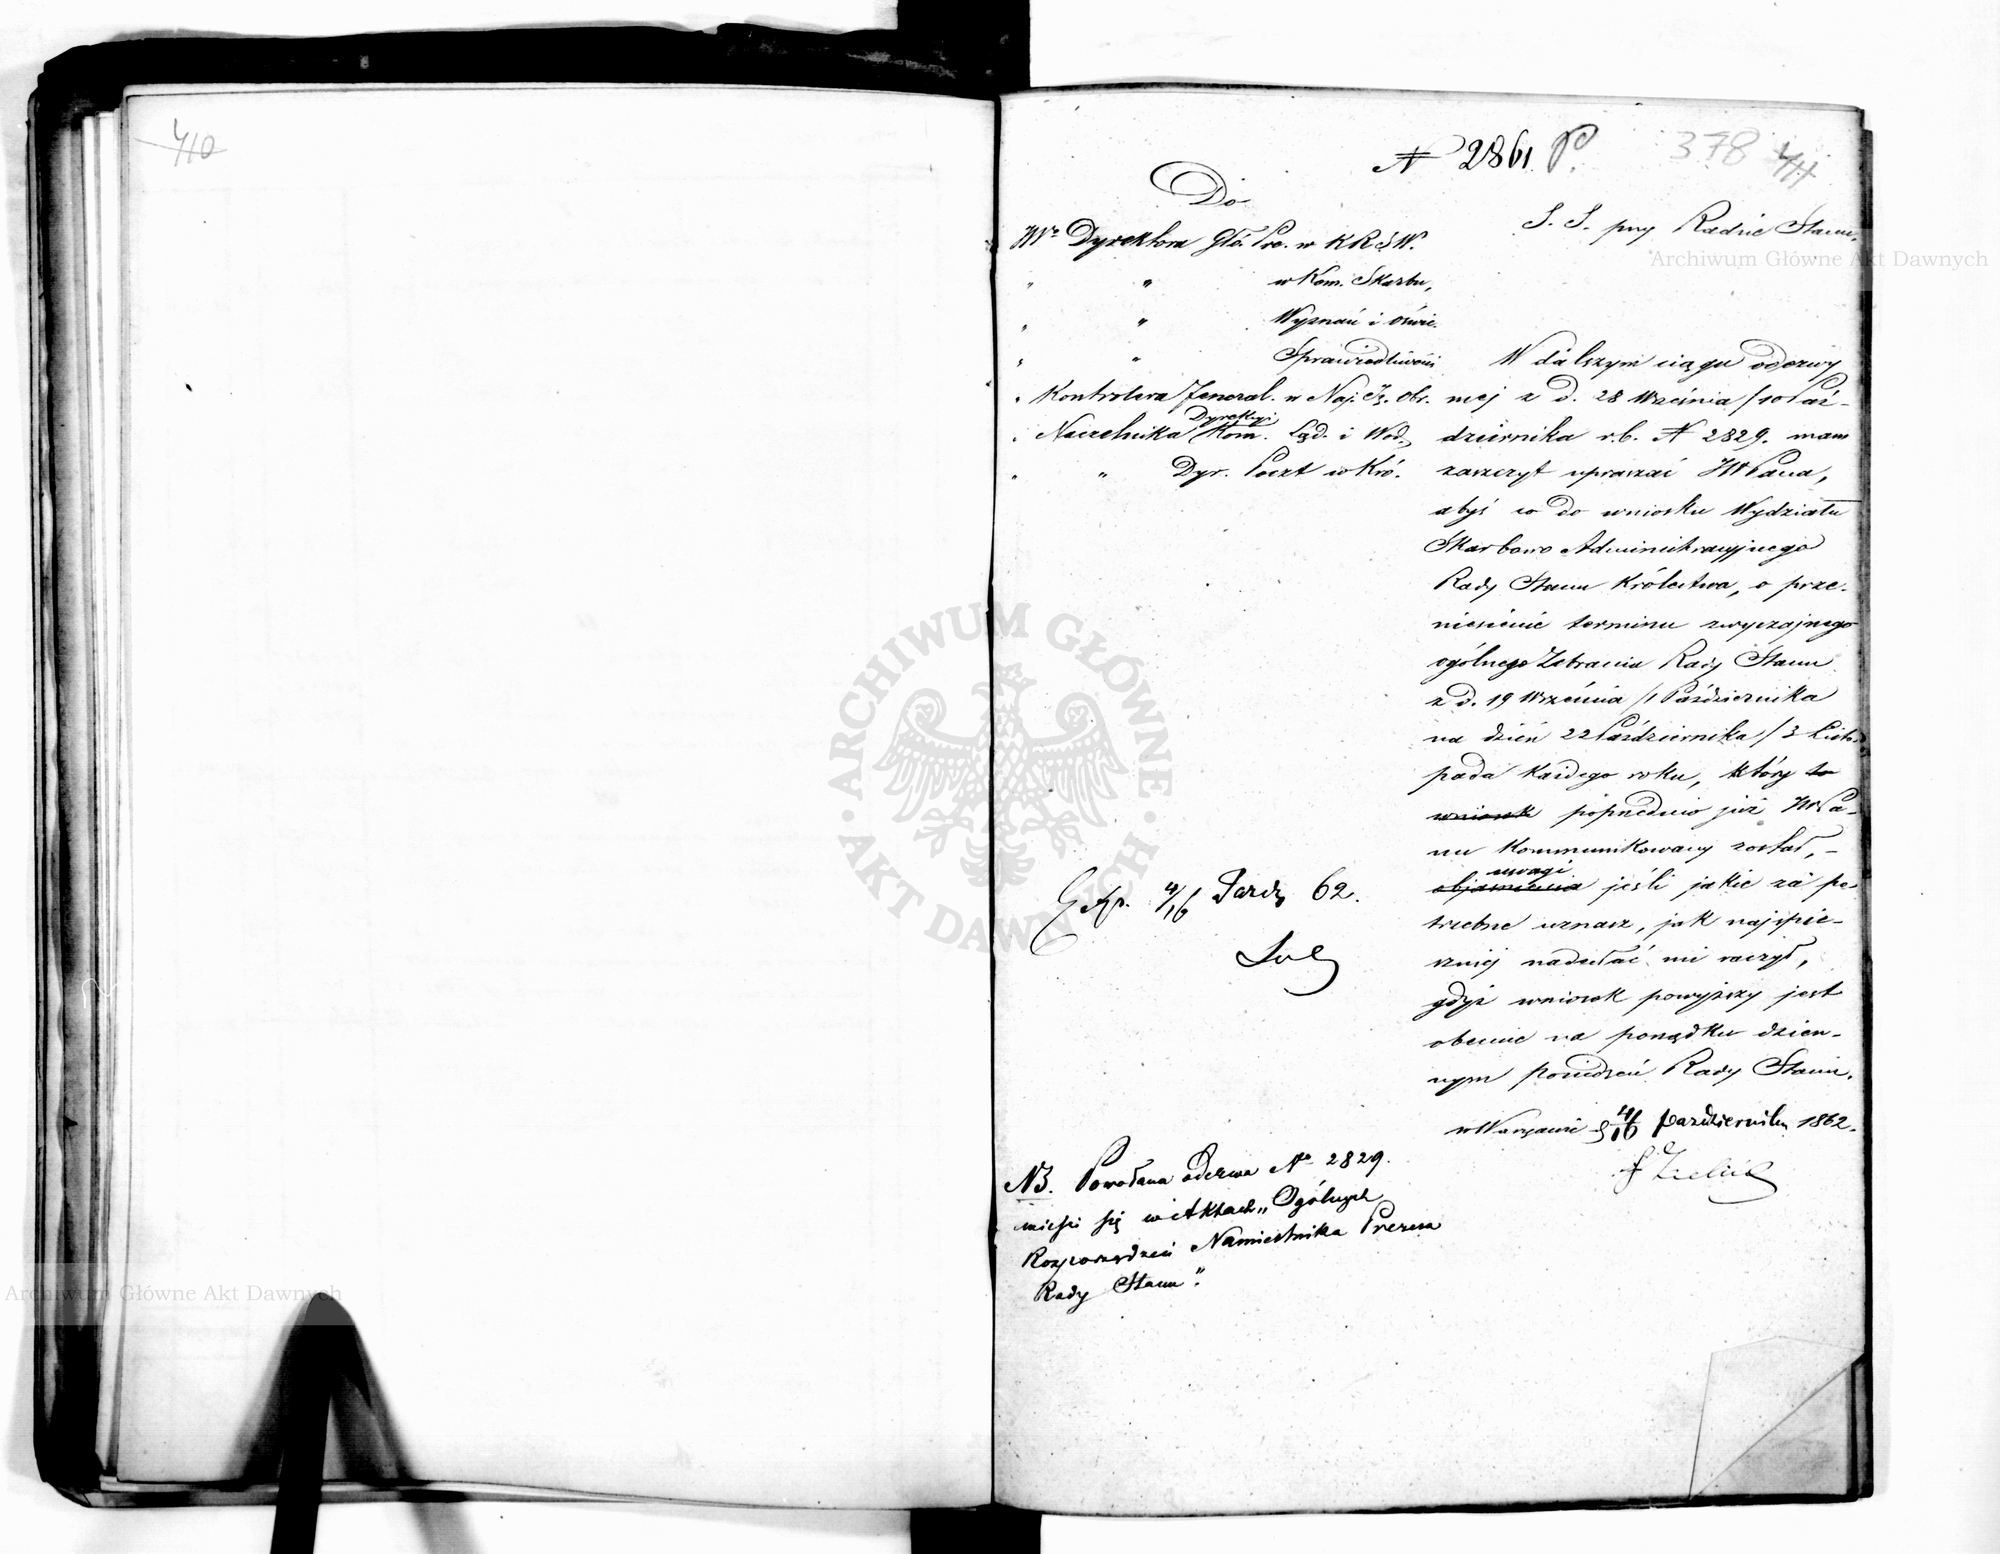 410
N 2861 P.
378 411
Do
JW° Dyrektora Głó. Pre. w K R S W.
" " w Kom. Skarbu,
" " Wyznań i Oświe.
" " Sprawiedliwości
" Kontrolera Jeneral. w Naj. Iz. Obr.
" Naczelnika Dyrekcyi Kom. Ląd. i Wod.
" " Dyr. Poczt w Kró.
S. S. przy Radzie Stanu.
W dalszym ciągu odezwy
mej z d. 28 Września / 10 Paź-
dziernika r.b. N 2829. mam
zaszczyt upraszać JWPana,
abyś co do wniosku Wydziału
Skarbowo Administracyjnego
Rady Stanu Królestwa, o prze-
niesienie terminu zwyczajnego
ogólnego Zebrania Rady Stanu
z d. 19 Września / 1 Października
na dzień 22 Października / 3 Listo-
pada każdego roku, który to
wniosek poprzednio już JWPa-
nu kommunikowany został, -
uwagi
objaśnienia jeśli jakie za po-
trzebne uznasz, jak najspie-
szniej nadesłać mi raczył,
gdyż wniosek powyższy jest
obecnie na porządku dzien-
nym posiedzeń Rady Stanu.
w Warszawie d 4/16 Października 1862.
Exp. 4/16 Paźdz 62.
NB. Powołana odezwa N° 2829.
mieści się w Aktach „Ogólnych
Rozporządzeń Namiestnika Prezesa
Rady Stanu".
ARCHIWUM GŁÓWNE AKT DAWNYCH
Archiwum Główne Akt Dawnych
Archiwum Główne Akt Dawnych